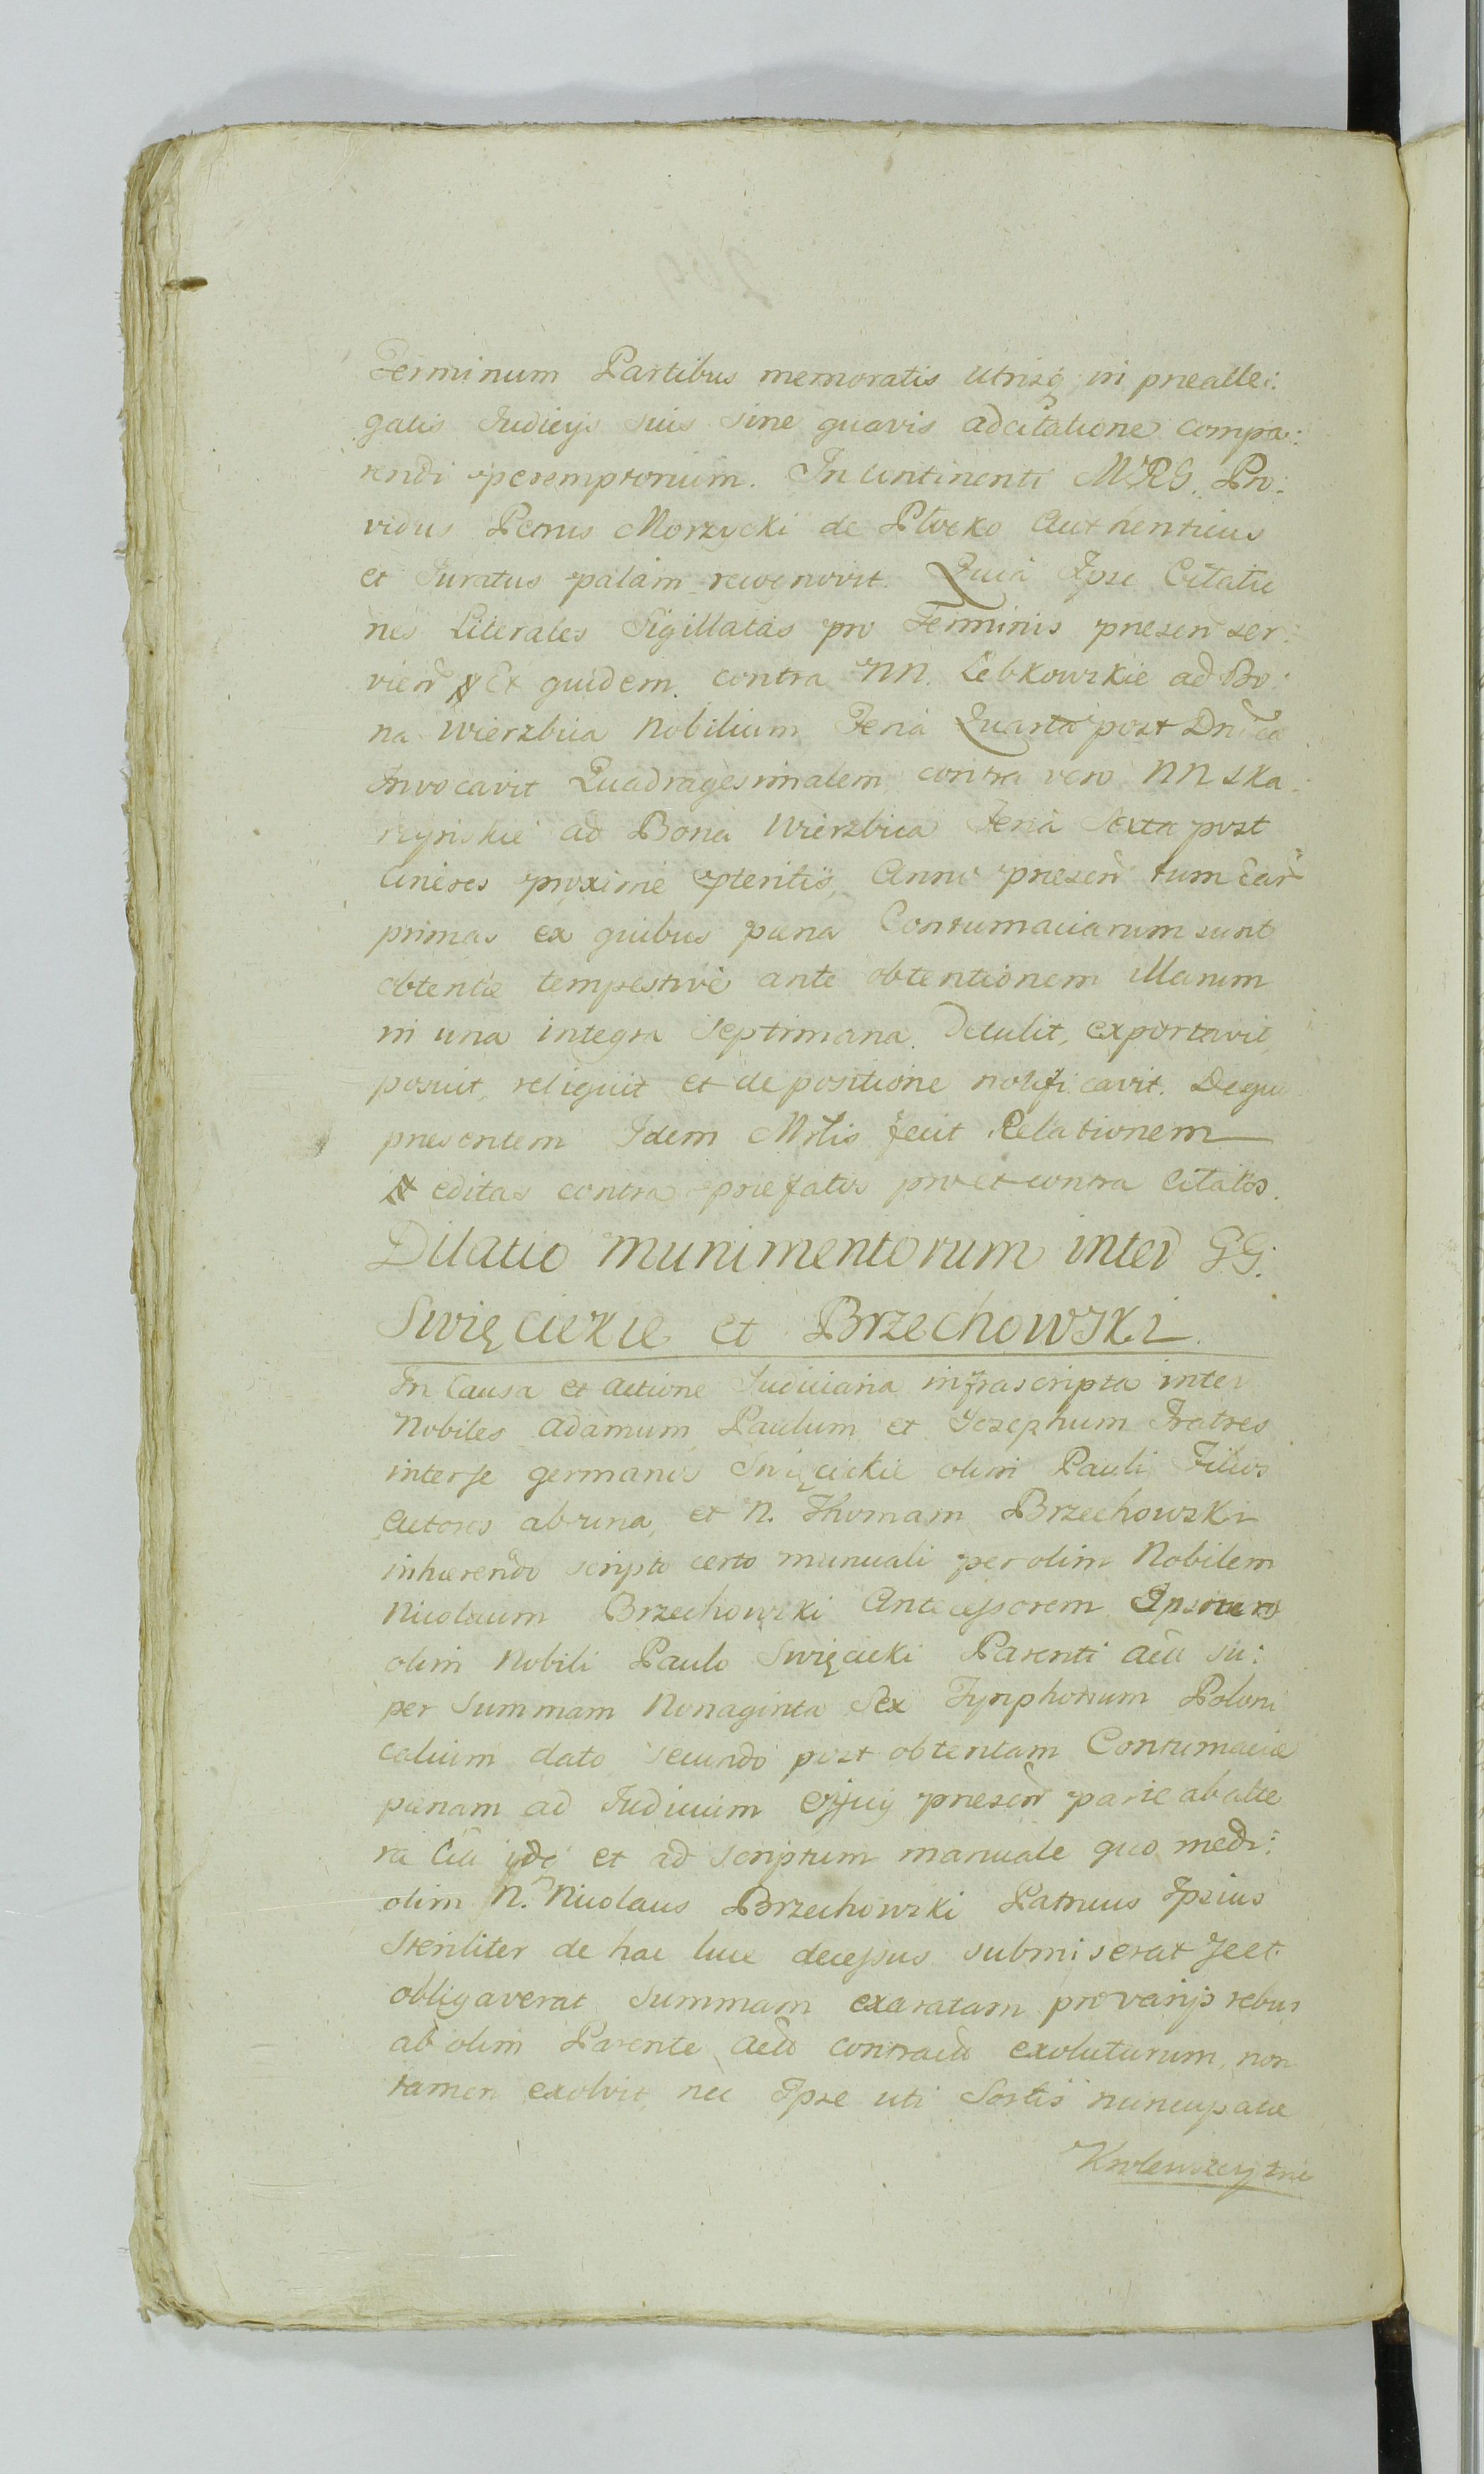 Terminum Partibus memoratis utrisq; in prealle:
gatis Judicijs suis sine quavis adcitatione compa:
rendi peremptorium. In continenti MRG. Pro:
vidus Petrus Morzycki de Plocko Authenticus
et Juratus palam recognovit. Quia Ipse Citatio
nes Literales Sigillatas pro Terminis presen ser:
vien et quidem contra NN. Lebkowskie ad Bo:
na Wierzbica Nobilium Feria Quarta post Dnicā
Invocavit Quadragesimalem contra vero NN Ska:
rzynskie ad Bona Wierzbica Feria Sexta post
Cineres proxime pteritis, Anno presen tum ear
primas ex quibus pœna Contumaciarum sunt
obtentæ tempestive ante obtentionem illarum
in una integra Septimana. Detulit, exportavit,
posuit, reliquit et de positione notificavit. De quo
presentem Idem Mrlis fecit Relationem
editas contra præfatos pro et contra Citatos.
Dilatio munimentorum inter GG:
Swięcickie et Brzechowski.
In Causa et Actione Judiciaria infrascripta inter
Nobiles Adamum, Paulum et Josephum Fratres
inter se germanos Swięcickie olim Pauli Filios
Actores ab una, et N. Thomam Brzechowski
inhærendo scripto certo manuali per olim Nobilem
Nicolaum Brzechowski Antecessorem Ipsius
olim Nobili Paulo Swięcicki Parenti Act su:
per Summam Nonaginta Sex Tynphonum Poloni
calium dato secundo post obtentam Contumaciæ
pœnam ad Judicium presen parte ab alte
ra et ad scriptum manuale quo medi:
olim N. Nicolaus Brzechowski Patruus Ipsius
Steriliter de hac luce decessus submiserat se et
obligaverat Summam exaratam pro varijs rebus
ab olim Parente Act contract exoluturum, non
tamen exolvit, nec Ipse uti Sortis nuncupatæ
Krolewszczyzna